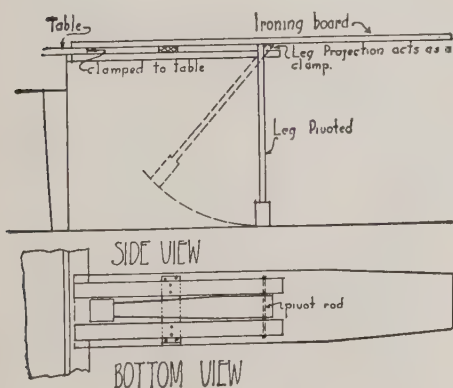 Table
Ironing board
clamped to table
Leg Projection acts as a
clamp.
Leg Pivoted
SIDE VIEW
pivot rod
BOTTOM VIEW